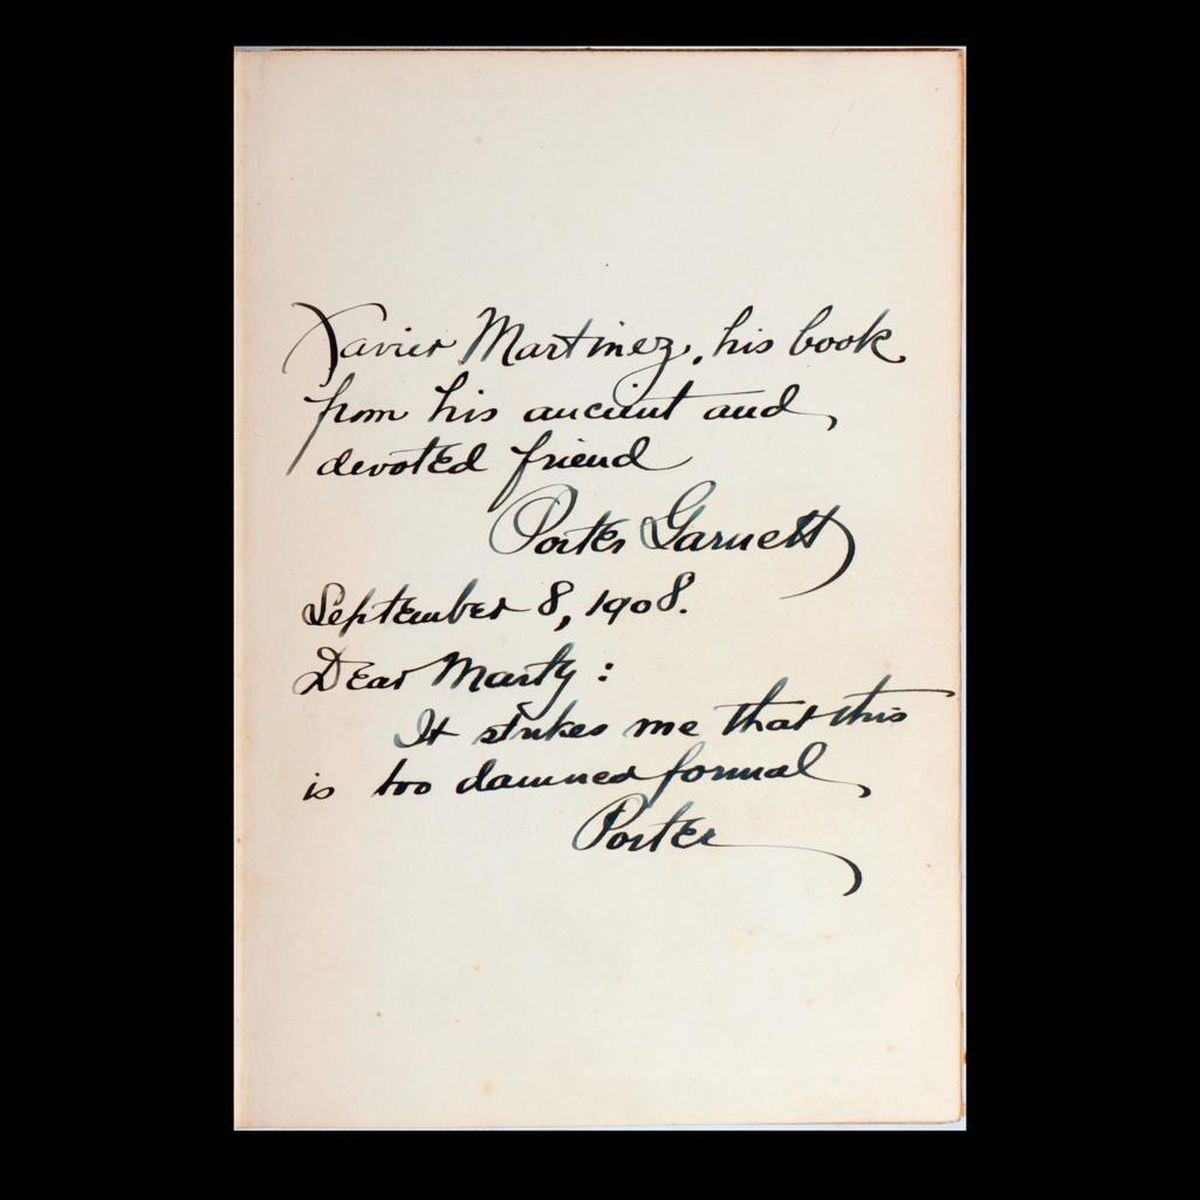 Xavier Martinez, his book
from his ancient and
devoted friend
Porter Garnett
September 8, 1908.
Dear Marty:
It strikes me that this
is too damned formal
Porter